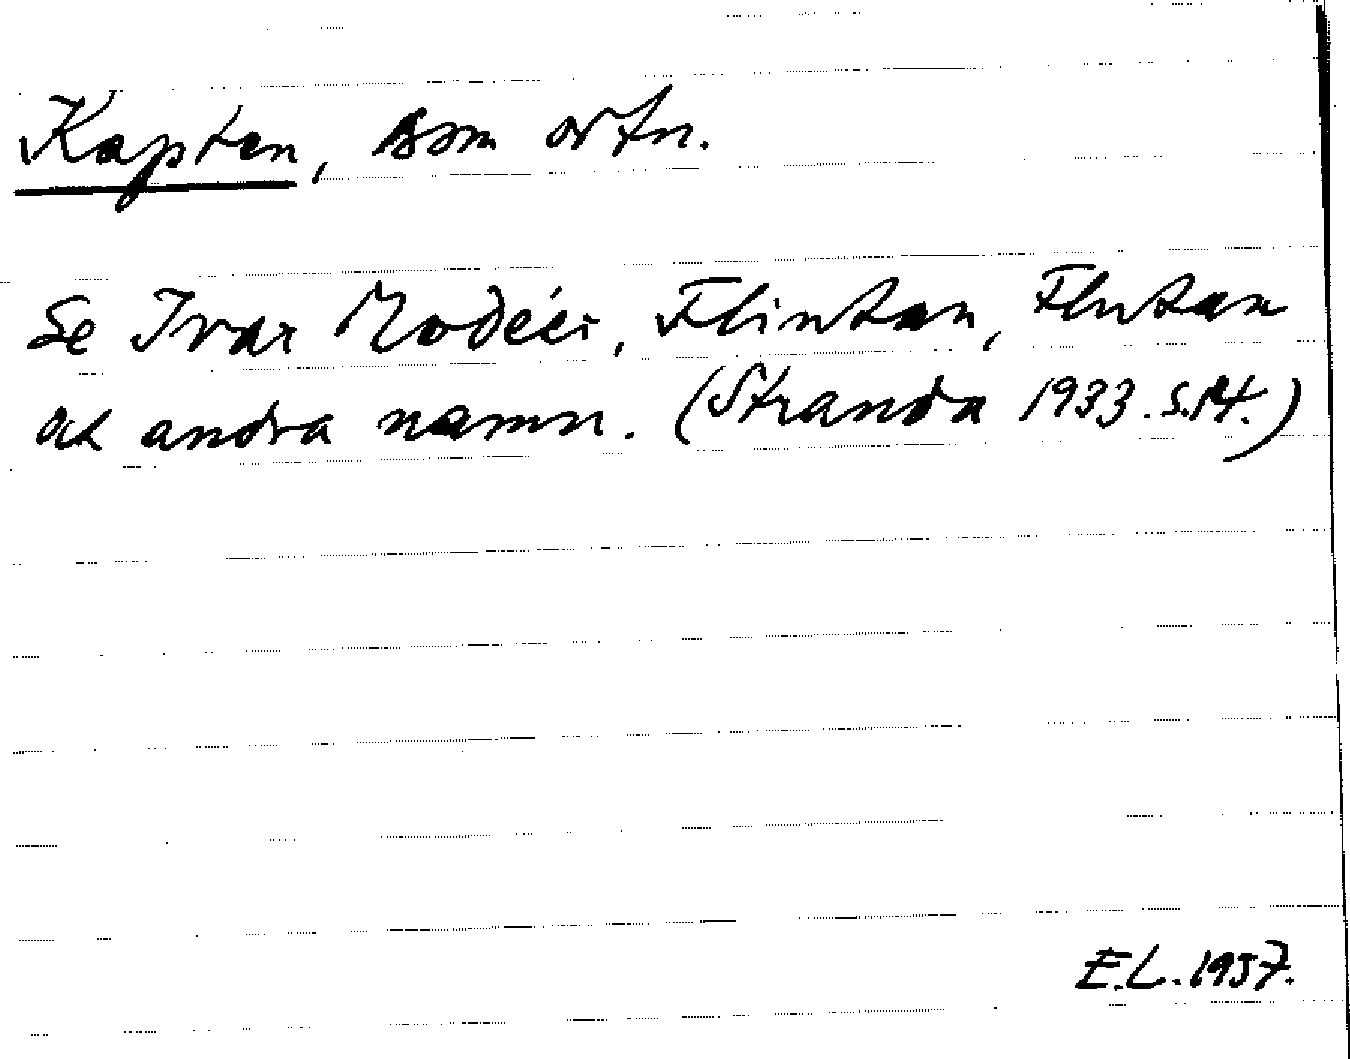 Kapten, som ortn.
Se Ivar Modéer, Flintan, Fluxan
och andra namn. (Stranda 1933. s. 14.)
E.L. 1957.